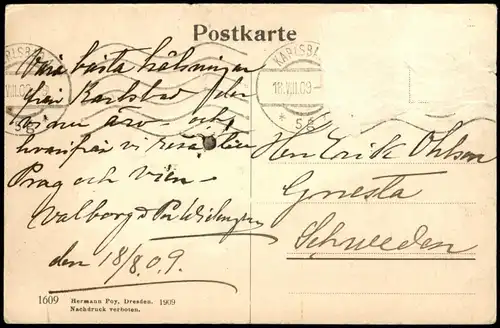 Postkarte
KARLSBAD
18.VIII.09
Våra bästa hälsningar
från Karlsbad der
vi nu äro – och
hvarifrån vi resa till
Prag och Wien –
Valborg o Per
den 18/8.09.
Herr Erik Ohlson
Gnesta
Schweden
1609 Hermann Poy, Dresden. 1909
Nachdruck verboten.